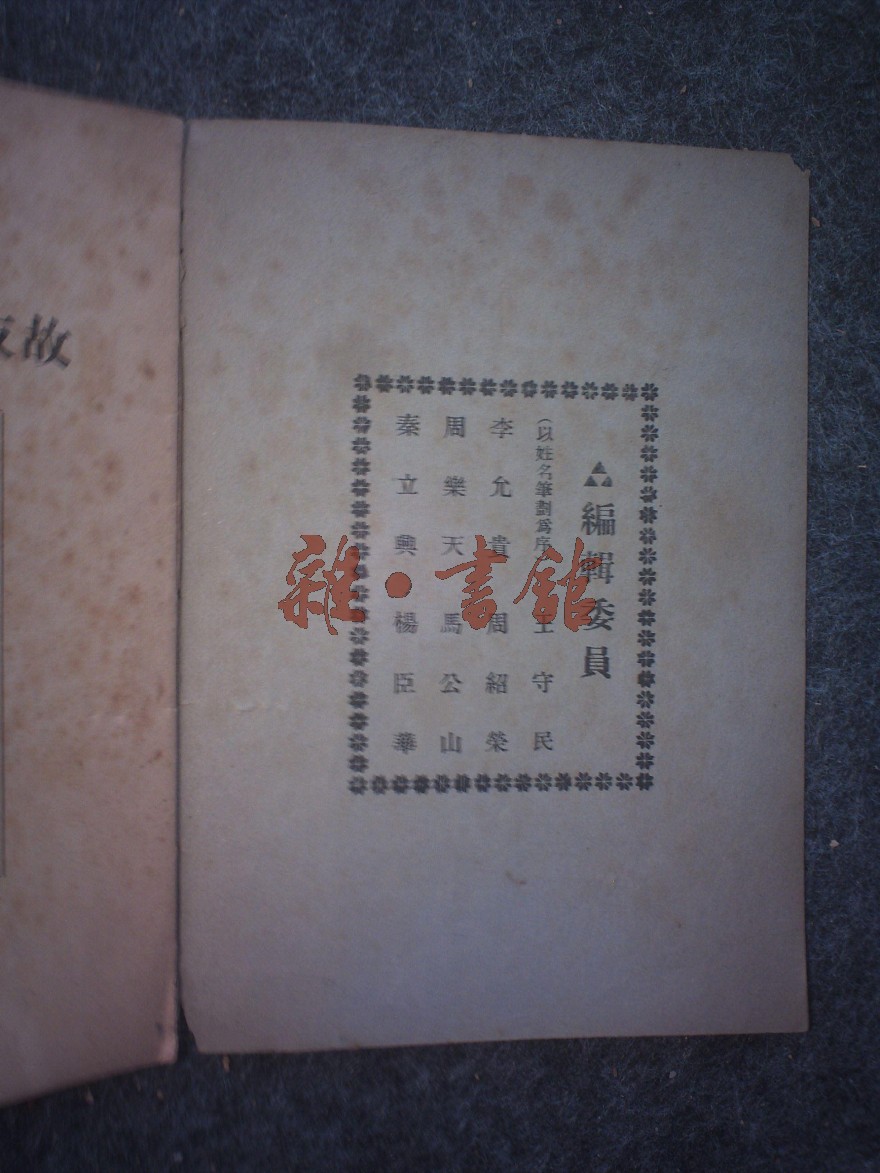 編輯委員
(以姓名筆劃爲序) 王守民
李允貴 周紹榮
周樂天 馬公山
秦立興 楊臣華
故
雜·書館